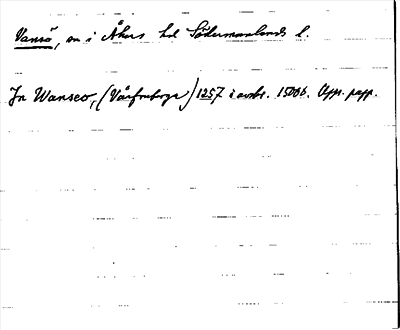 Vansö, sn i Åkers hd Södermanlands l.
In Wanseo, (Vårfruberga) 1257 i avskr. 1500b. Upps. papp.